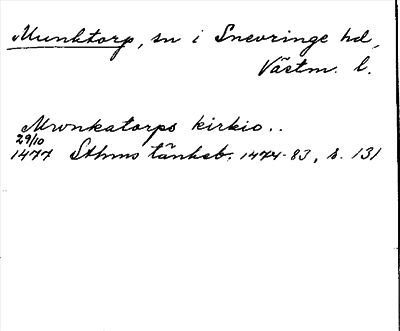 Munktorp, sn i Snevringe hd,
Västm. l.
Mwnkatorps kirkio..
29/10
1477 Sthms tänkeb. 1474-83, s. 131